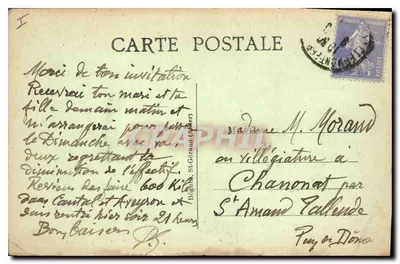 I
CARTE POSTALE
Merci de ton invitation
Recevrai ton mari et ta
fille demain matin et
m'arrangerai pour passer
le Dimanche avec vous
deux regrettant la
diminution de l'effectif.
Reviens de faire 600 Kil
dans Cantal et Aveyron et
suis rentré hier soir 21 heures
Bons baisers
Madame M. Morand
en villégiature a
Chanonat par
St Amand Tallende
Puy de Dôme